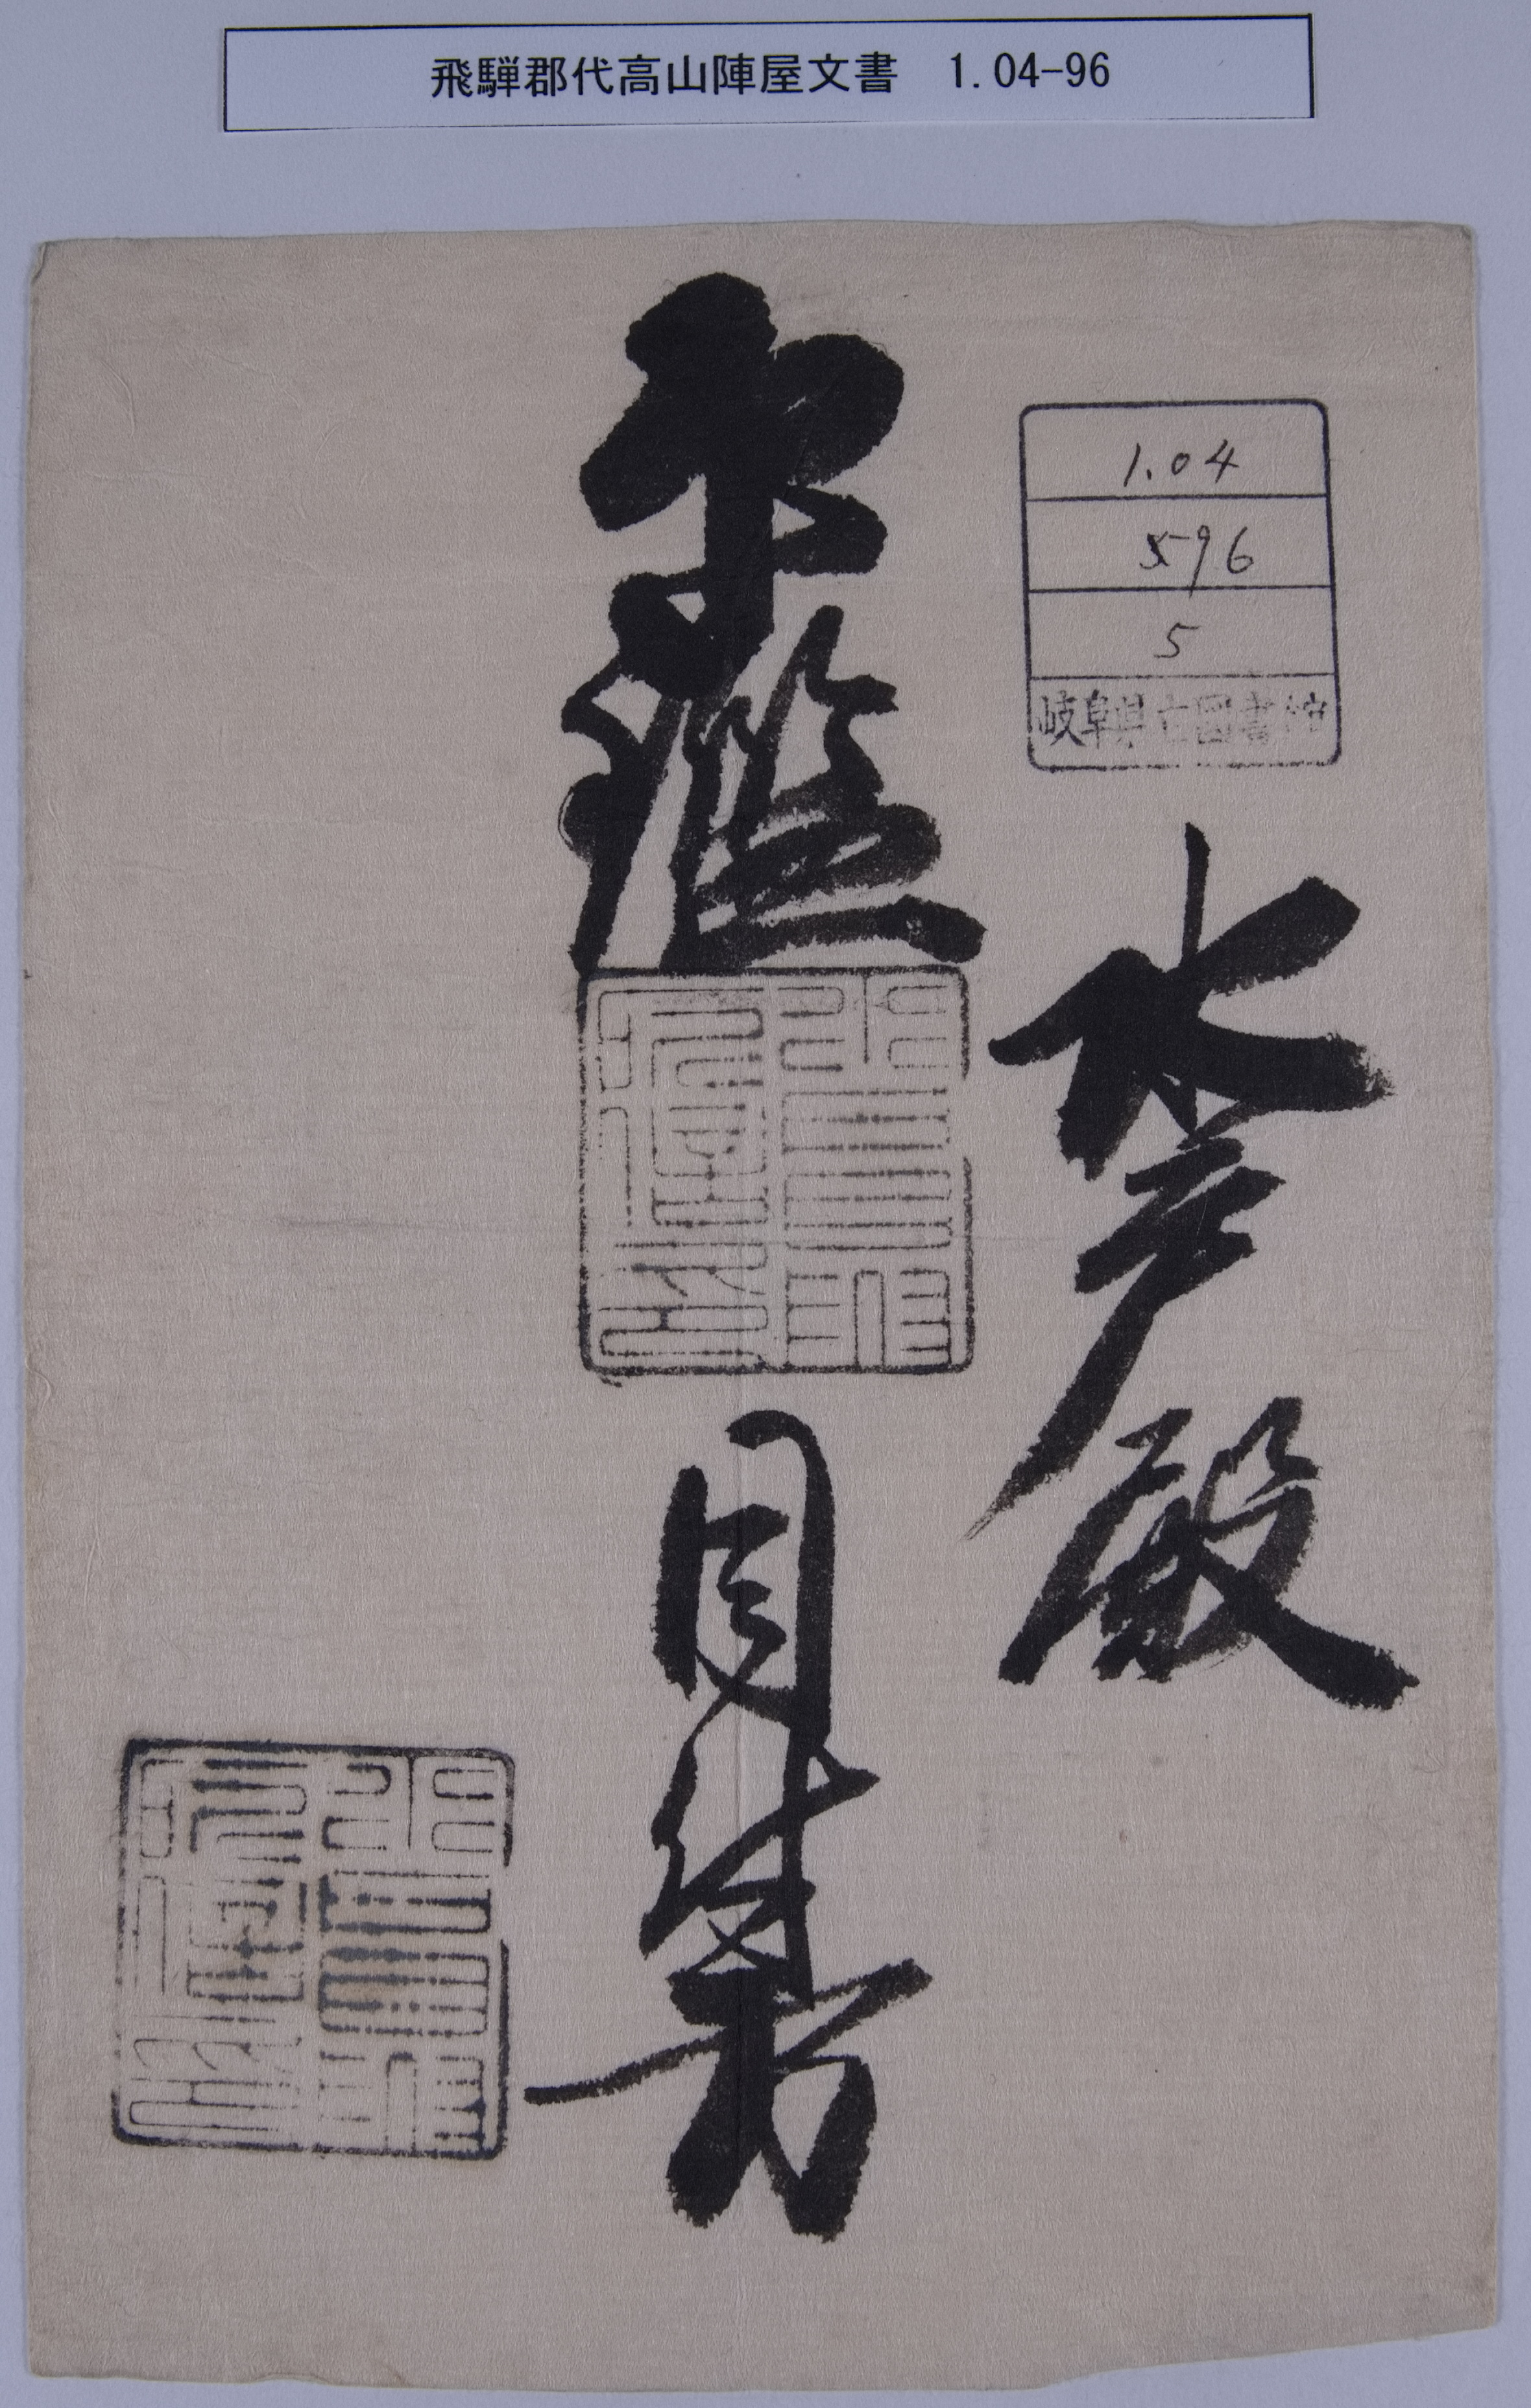 飛騨郡代高山陣屋文書 1.04-96
1.04
596
5
岐阜県立図書館
水戸殿
印鑑
目付方